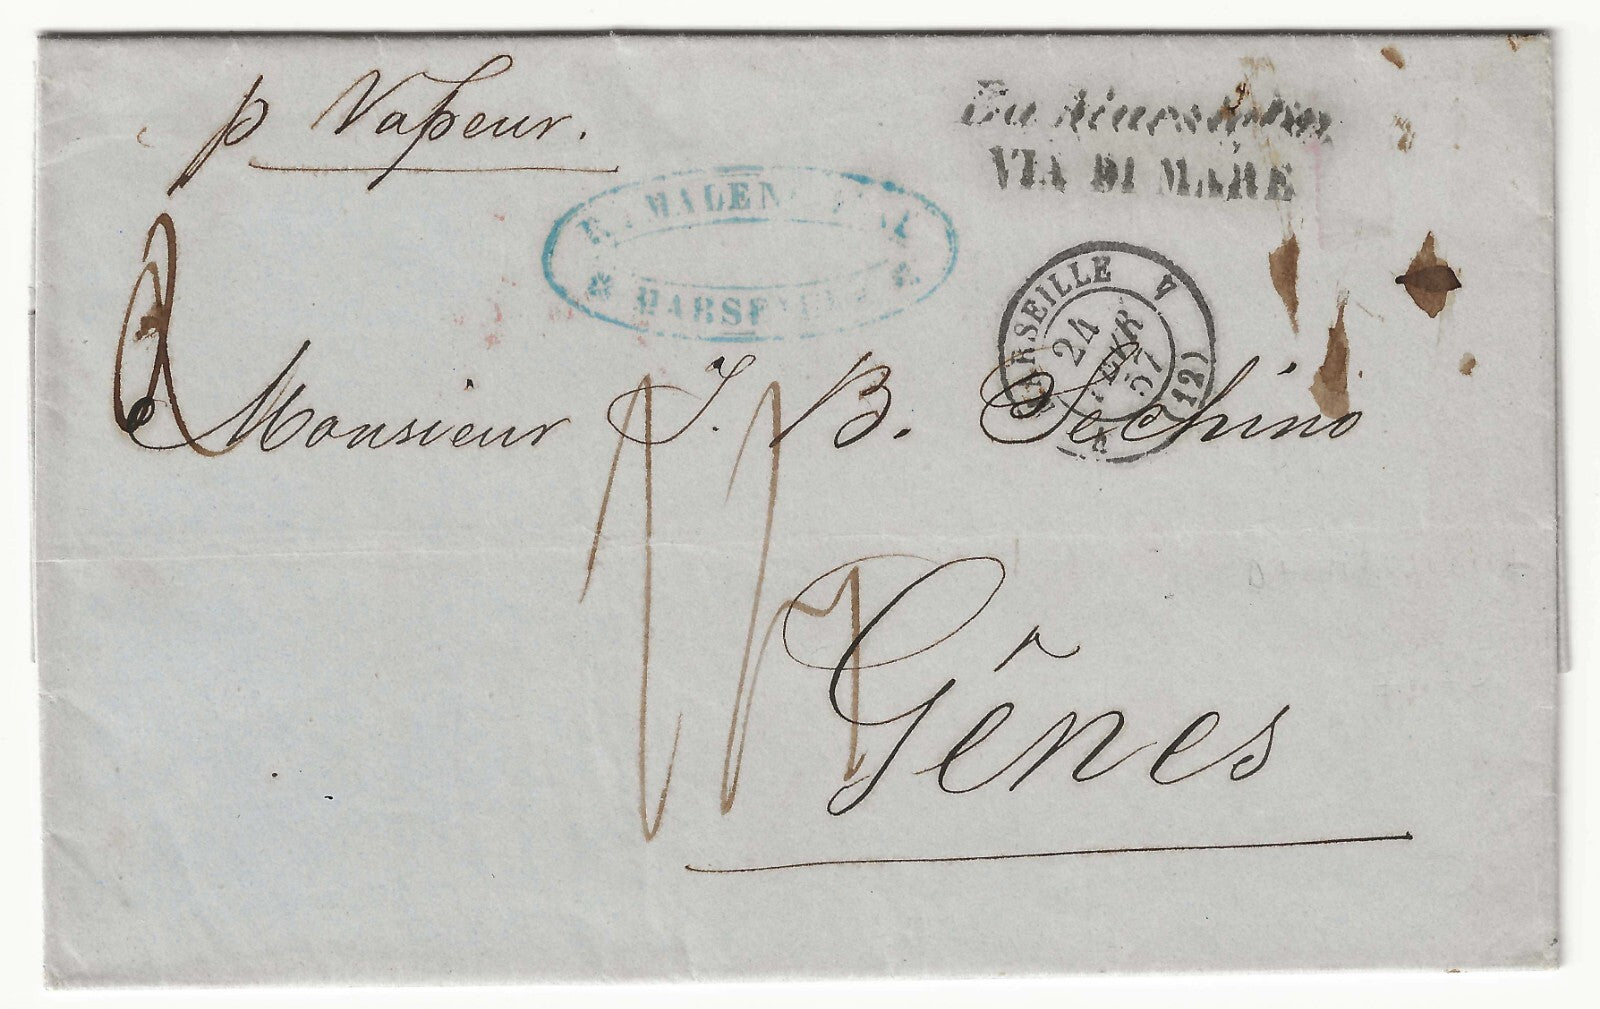 p Vapeur.
VIA DI MARE
MALEN
MARSEILLE
MARSEILLE
24
FEVR
57
(12)
Monsieur J. B. Sechino
Gênes